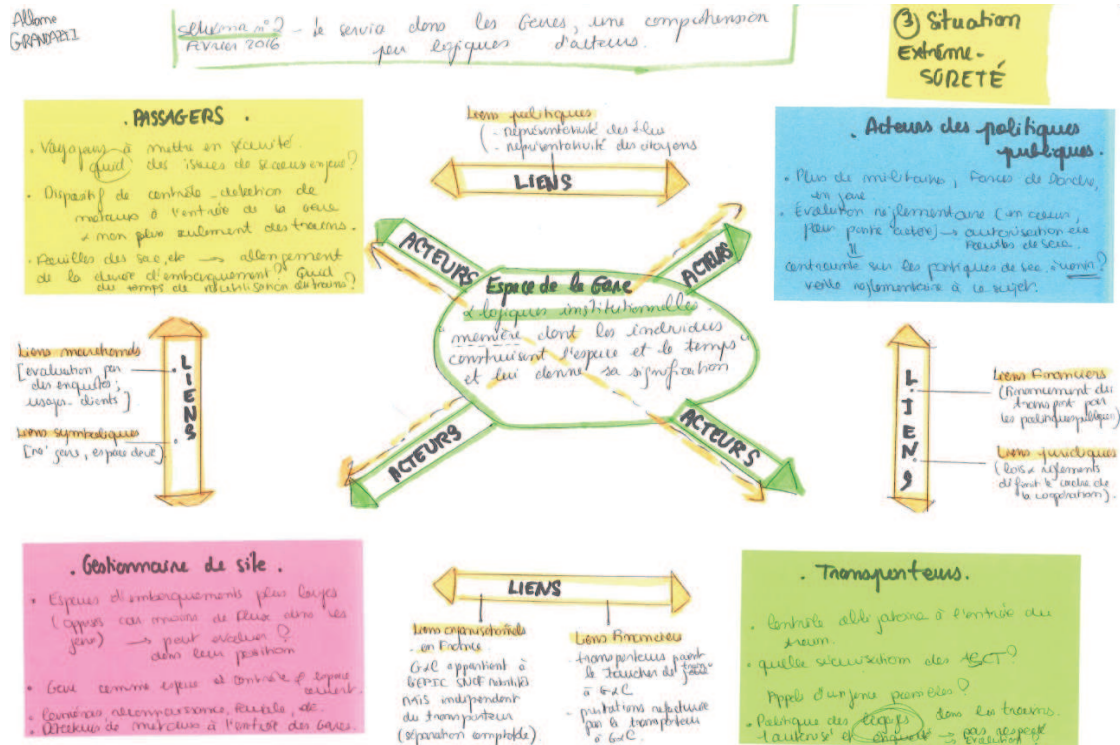 Albane
GRANDAZZI
schéma n°2 - le service dans les Gares, une compréhension
Février 2016
par logiques d'acteurs.
③ Situation
Extrême -
SÛRETÉ
. PASSAGERS .
• Voyageurs à mettre en sécurité.
quid des issues de secours en jeu?
• Dispositif de contrôle - détection de
métaux à l'entrée de la Gare
& non plus seulement des trains.
• Fouilles des sac, etc → allongement
de la durée d'embarquement? Quid
du temps de réutilisation des trains?
Liens politiques
(- représentativité des élus
- représentativité des citoyens
LIENS
. Acteurs des politiques
publiques.
• Plus de militaires, Forces de l'ordre,
en gare
• Evolution réglementaire (en cours,
pour porte)→ autorisation de
Fouilles de sacs.
contrainte sur les pratiques de sec.
veille réglementaire à ce sujet.
ACTEURS
ACTEURS
Espace de la Gare
& logiques institutionnelles
"manière dont les individus
construisent l'espace et le temps
et lui donne sa signification
ACTEURS
ACTEURS
Liens marchands
[évaluation par
des enquêtes;
usagers-clients]
Liens symboliques
LIENS
LIENS
Liens Financiers
(Financement du
transport par
les politiques publiques)
Liens juridiques
(lois & règlements
définit le cadre de
la coopération).
. Gestionnaire de site .
• Espaces d'embarquements plus larges
(après cas moins de Flux dans les
gare) → peut évoluer?
dans leur position
• Gare comme espace de contrôle & espace
ouvert.
• Caméras reconnaissance faciale, etc.
• Détecteurs de métaux à l'entrée des Gares.
LIENS
Liens organisationnels
- en France
G&C appartient à
l'EPIC SNCF Mobilités
mais indépendant
du transporteur
(séparation comptable).
Liens Financiers
- transporteurs paient
le toucher de train
à G&C
- prestations refacturée
par le transporteur
à G&C.
. Transporteurs.
• Contrôle aléatoire à l'entrée du
train.
• quelle sécurisation des ASCT?
Appels d'urgence possibles?
• Politique des bagages dans les trains.
"autorisé et étiqueté → pas respecté
évolution